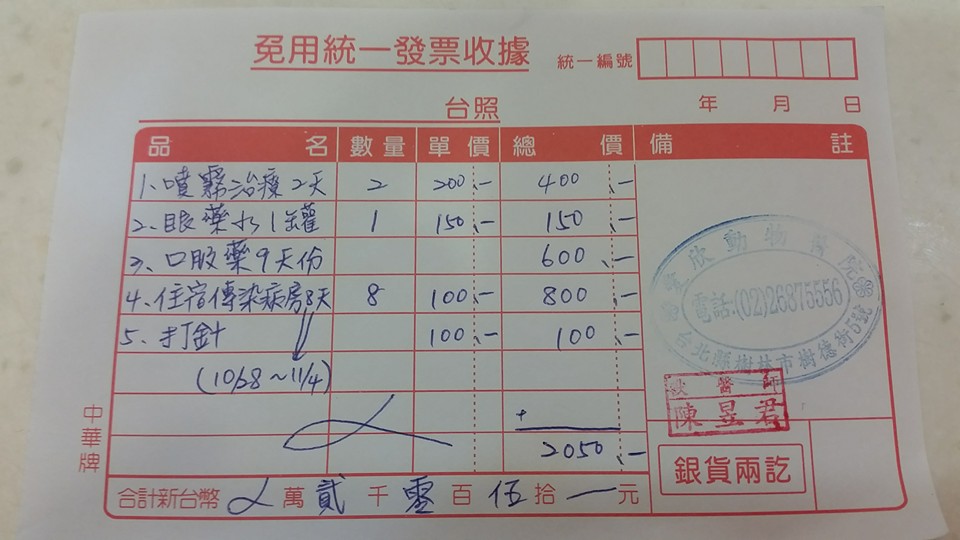 免用統一發票收據
統一編號
台照
年 月 日
品名 數量 單價 總價 備註
1、噴霧治療2天 2 200、- 400、-
2、眼藥水1罐 1 150、- 150、-
3、口服藥9天份 600、-
4、住宿傳染病房8天 8 100、- 800、-
5、打針 100、- 100、-
(10/28~11/4)
+
2050、-
欣動物醫院
電話:(02)26875556
台北縣樹林市樹德街5號
獸醫師
陳昱君
銀貨兩訖
合計新台幣 萬貳千零百伍拾一元
中華牌